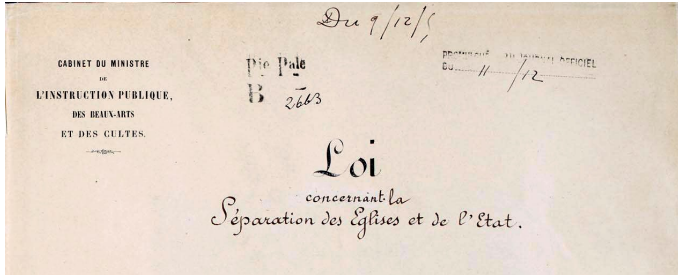 Du 9/12/5
CABINET DU MINISTRE
DE
L'INSTRUCTION PUBLIQUE,
DES BEAUX-ARTS
ET DES CULTES.
Pie Pale
B 2663
PROMULGUÉ AU JOURNAL OFFICIEL
DU 11/12
Loi
concernant la
Séparation des Eglises et de l'Etat.